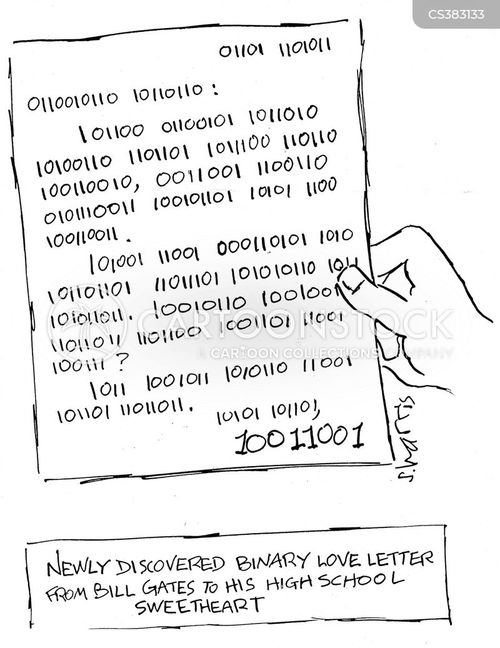 CS383133
01101 1101011
0110010110 10110110 :
101100 01100101 1011010
10100110 1101101 101100 110110
100110010, 0011001 1100110
0101110011 10010101 10101 1100
10011001.
101001 11001 000110101 1010
10110101 11011101 101010110 1011
10101011. 10010110 1001001
1101101 1101100 1001101 11001
100111 ?
1011 1001011 1010110 11001
101101 11011011.
10101 101101,
10011001
S.HARRIS
CARTOONSTOCK
CARTOON COLLECTIONS COMPANY
NEWLY DISCOVERED BINARY LOVE LETTER
FROM BILL GATES TO HIS HIGH SCHOOL
SWEETHEART